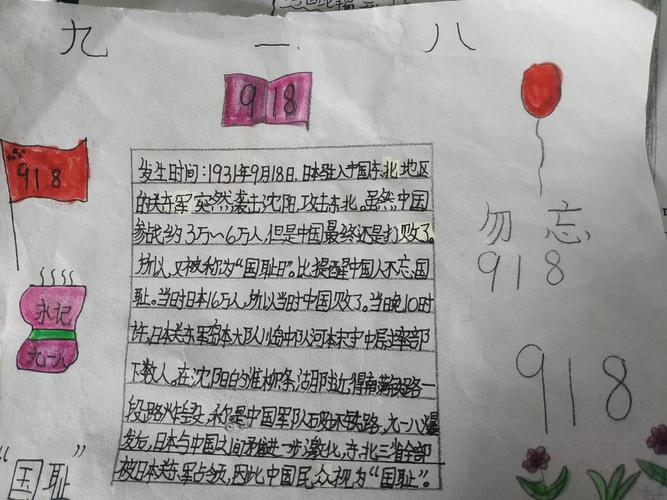 九 一 八
918
918
永记
九一八
"国耻"
发生时间:1931年9月18日,日本驻入中国东北地区
的关东军突然袭击沈阳,攻击东北。虽然中国
参战约3万~6万人,但是中国最终还是打败了。
所以,又被称为"国耻日"。比提醒中国人不忘,国
耻。当时日本16万人,所以当时中国败了。当晚10时
许,日本关东军岛本大队川岛中队河本末守中尉率部
下数人,在沈阳的
段路炸毁,称是中国军队破坏铁路,九一八爆
发后,日本与中国之间矛盾进一步激化,东北三省全部
被日本关东军占领,因此中国民众视为"国耻"。
勿忘
918
918